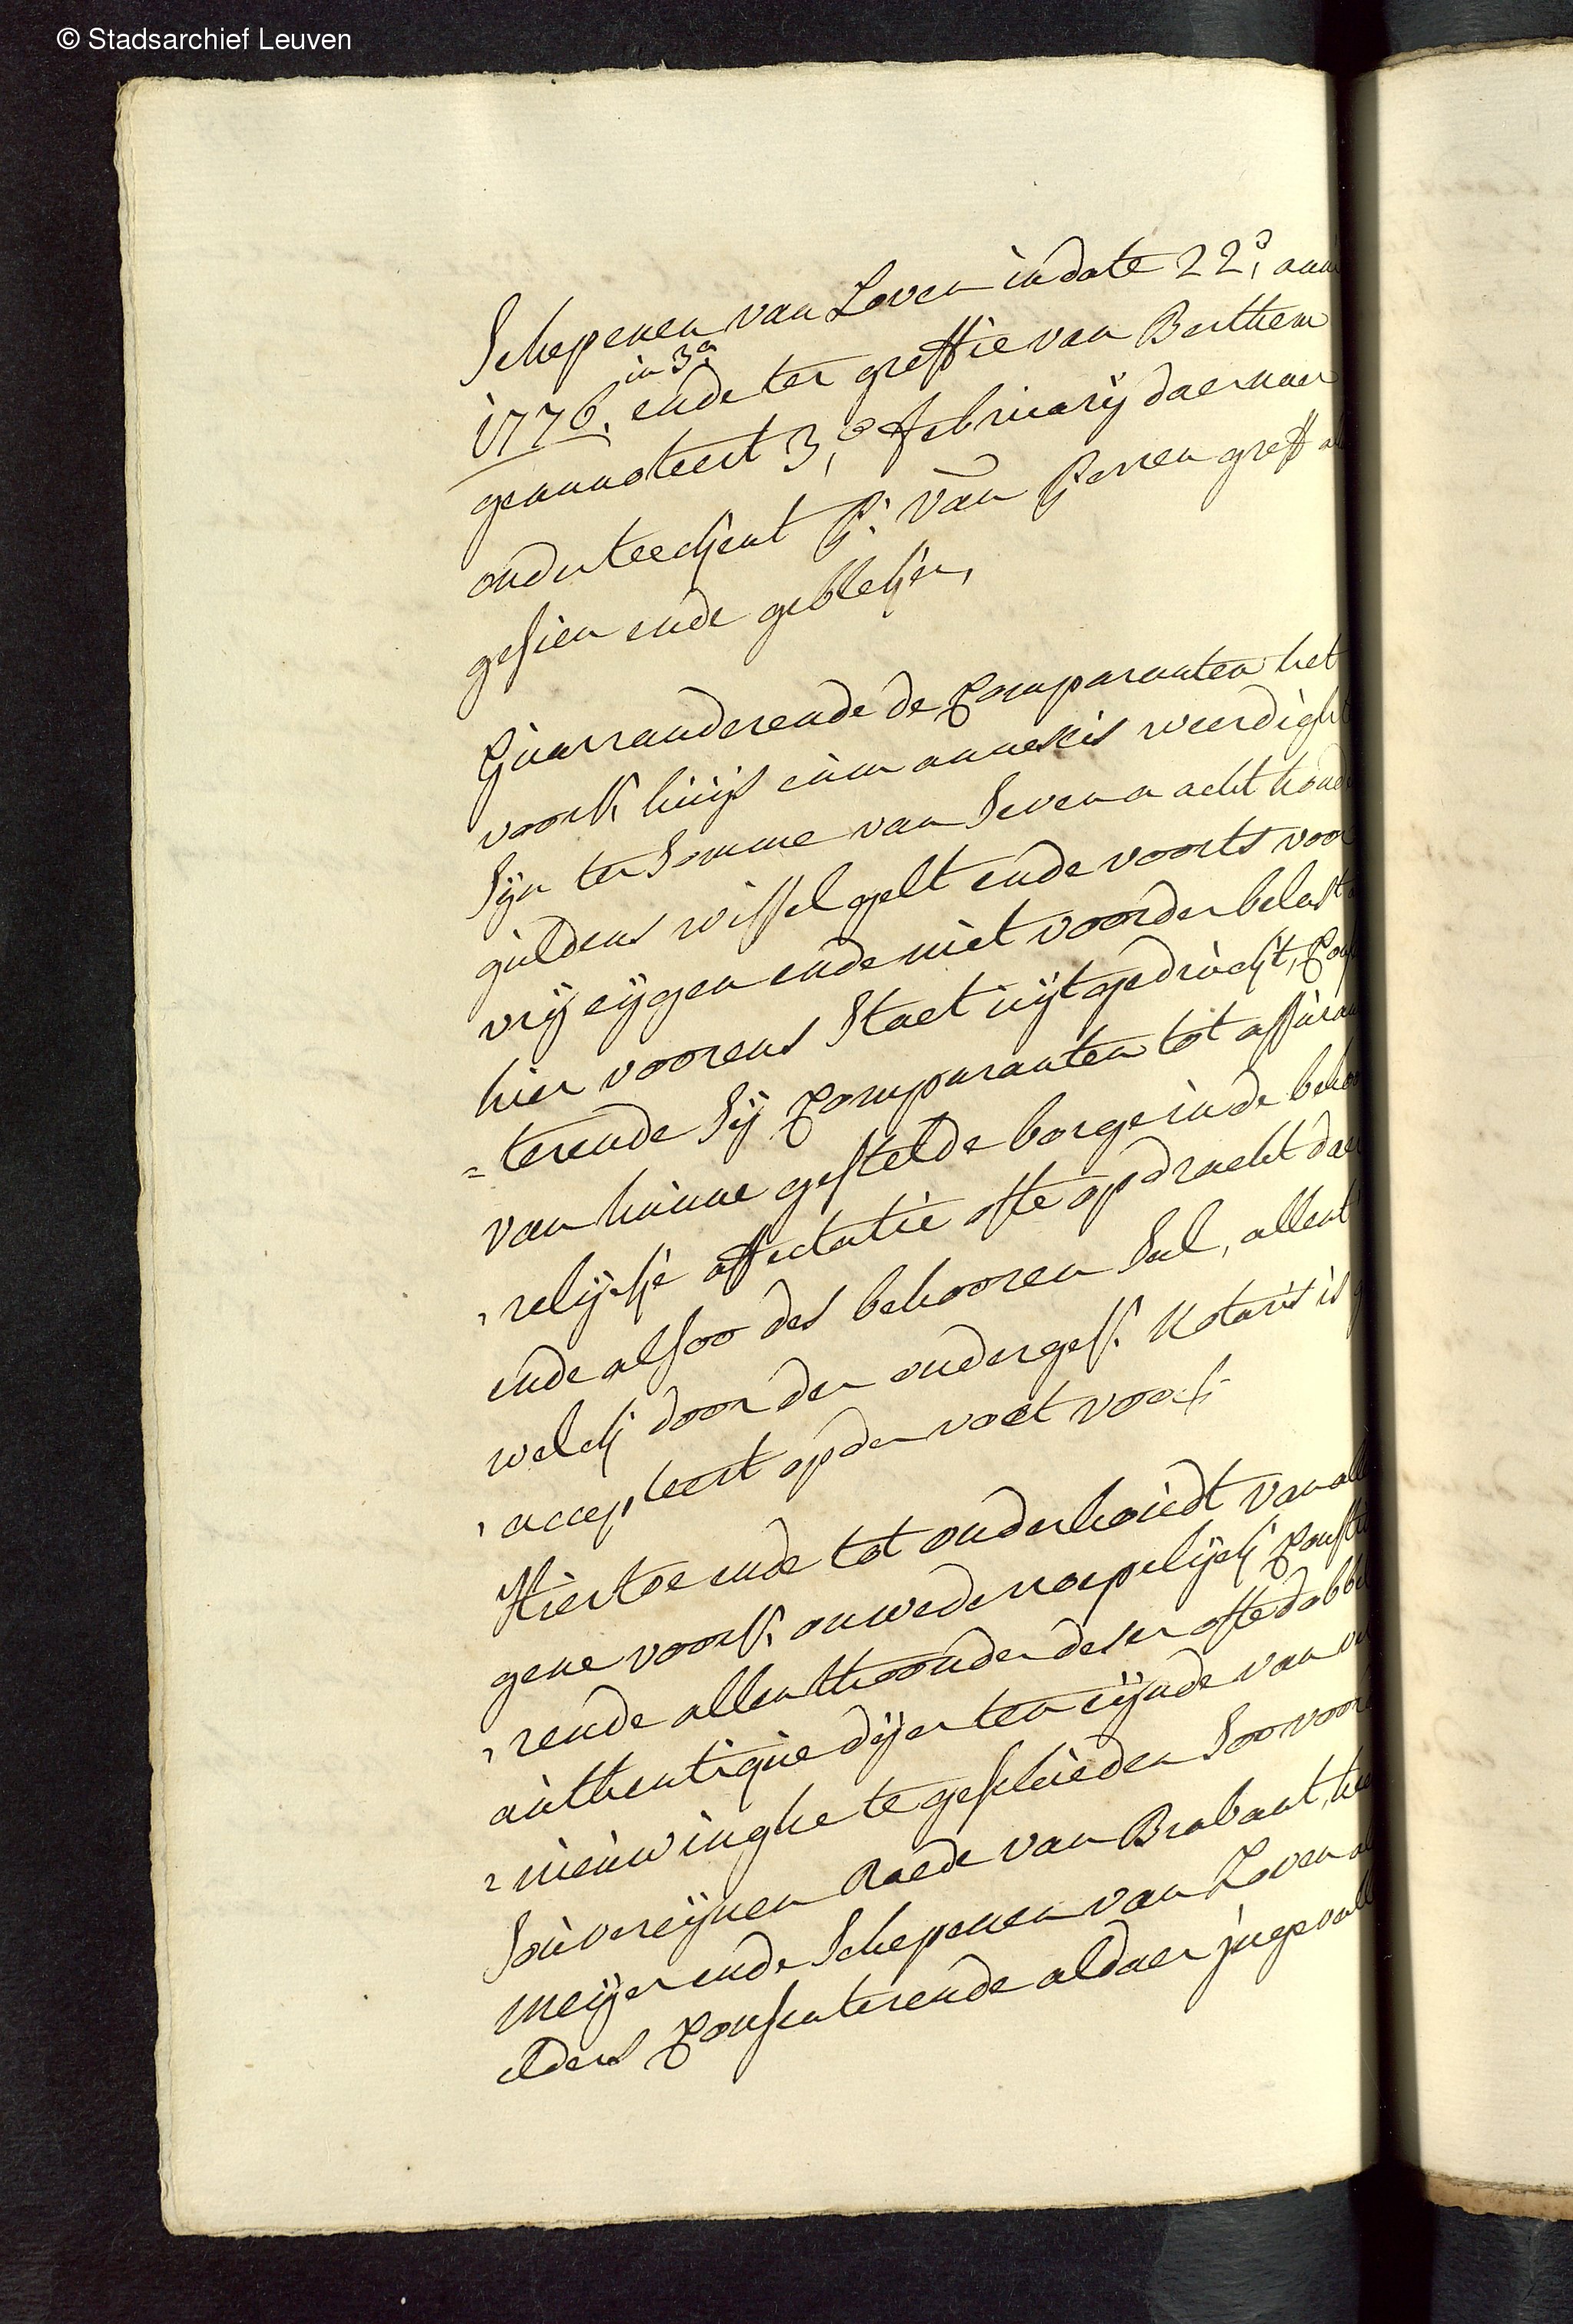 © Stadsarchief Leuven
Schepenen van Loven in date 22:
in 3a
1776. ende ter greffie van Berthem
geannoteert 3:e februarij daernaer
onderteeckent van greff
gesien ende gebleken,
Guarranderende de Comparanten het
voors. huijs cum annexis weerdigh
sijn ter somme van seven a acht hond
guldens wissel gelt ende voorts voor
vrij eijgen ende niet voorder belast
hier voorens staet uijtgedruckt,
=terende sij Comparanten tot assuran
van hunne gestelde borge in de behoo
,relijcke affectatie ofte opdracht daer
ende alsoo des behooren sal, allent
welck door den onderges. Notaris is
,accepteert op den voet voors.
Hiertoe ende tot onderhoudt van all
gene voors. onwederroepelijck Consti
,rende allen thoonder deser ofte dobbel
authentique dijer ten eijnde van
,nieuwinghe te geschieden soo voor
souvereijnen Raede van Brabant,
meijer ende Schepenen van Loven
elders Consenterende aldaer